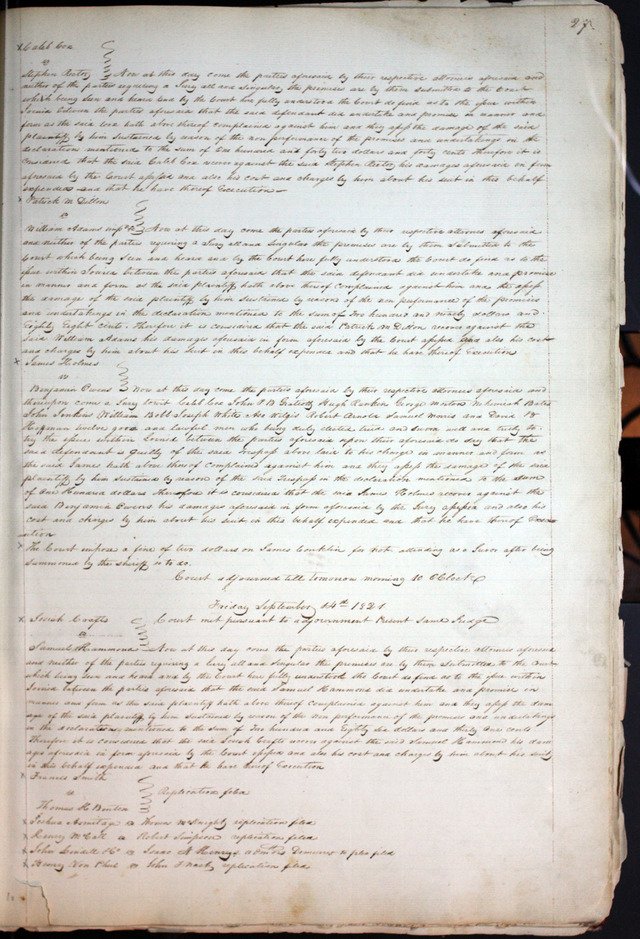 27.
Caleb Cox
v
Stephen Rector } Now at this day come the parties aforesaid by their respective attornies aforesaid and
neither of the parties requiring a Jury all and singular the premises are by them submitted to the Court
which being seen and heard and by the Court here fully understood the Court do find as to the issue within
Joined between the parties aforesaid that the said defendant did undertake and promise in manner and
form as the said Cox hath above thereof complained against him and they assess the damage of the said
plaintiff by him sustained by reason of the non performance of the promises and undertakings in the
declaration mentioned to the sum of One hundred and forty two dollars and forty cents Therefore it is
considered that the said Caleb Cox recover against the said Stephen Rector his damages aforesaid in form
aforesaid by the Court assessed and also his cost and charges by him about his suit in this behalf
expended and that he have thereof Execution
Patrick M Dillon
v
William Adams } Now at this day come the parties aforesaid by their respective attornies aforesaid
and neither of the parties requiring a Jury all and singular the premises are by them submitted to the
Court which being seen and heard and by the Court here fully understood the Court do find as to the
issue within Joined between the parties aforesaid that the said defendant did undertake and promise
in manner and form as the said plaintiff hath above thereof complained against him and they assess
the damage of the said plaintiff by him sustained by reason of the non performance of the promises
and undertakings in the declaration mentioned to the sum of Two hundred and ninety dollars and
Eighty Eight cents. Therefore it is considered that the said Patrick M Dillon recover against the
said William Adams his damages aforesaid in form aforesaid by the Court assessed and also his cost
and charges by him about his suit in this behalf expended and that he have thereof Execution
James Holmes
vs
Benjamin Owens } Now at this day come the parties aforesaid by their respective attornies aforesaid and
thereupon come a Jury towit Caleb Cox John P B Gratiott Hugh Rankin George Morton Nehemiah Bates
John Jenkins William Bobb Joseph White Robert Arnold Samuel Morris and David B
Hoffman twelve good and lawful men who being duly elected tried and sworn well and truly to
try the issue within Joined between the parties aforesaid upon their aforesaid do say that the
said defendant is Guilty of the said trespass above laid to his charge in manner and form as
the said James hath above thereof complained against him and they assess the damage of the said
plaintiff by him sustained by reason of the said Trespass in the declaration mentioned to the sum
of One Hundred dollars therefore it is considered that the said James Holmes recover against the
said Benjamin Owens his damages aforesaid in form aforesaid by the Jury assessed and also his
cost and charges by him about his suit in this behalf expended and that he have thereof Exec
ution
The Court impose a fine of two dollars on James Conklin for not attending as a Juror after being
summoned by the sheriff so to do.
Court adjourned till tomorrow morning 10 OClock
Friday September 14th 1821
Court met pursuant to adjournment Present Same Judge
Josiah Crafts
v
Samuel Hammond } Now at this day come the parties aforesaid by their respective attornies aforesaid
and neither of the parties requiring a Jury all and singular the premises are by them submitted to the Court
which being seen and heard and by the Court here fully understood the Court do find as to the issue within
Joined between the parties aforesaid that the said Samuel Hammond did undertake and promise in
manner and form as the said plaintiff hath above thereof complained against him and they assess the dam
age of the said plaintiff by him sustained by reason of the non performance of the promises and undertakings
in the declaration mentioned to the sum of Two hundred and Eighty six dollars and thirty one cents
Therefore it is considered that the said Josiah Crafts recover against the said Samuel Hammond his dam
ages aforesaid in form aforesaid by the Court assessed and also his cost and charges by him about his suit
in this behalf expended and that he have thereof Execution
Francis Smith
v } Replication filed
Thomas H Benton
Joshua Armitage v Thomas McKnight replication filed
Henry McCall v Robert Simpson replication filed
John Lindell v Isaac A Henry Demurrer to plea filed
Henry Von Phul v John replication filed